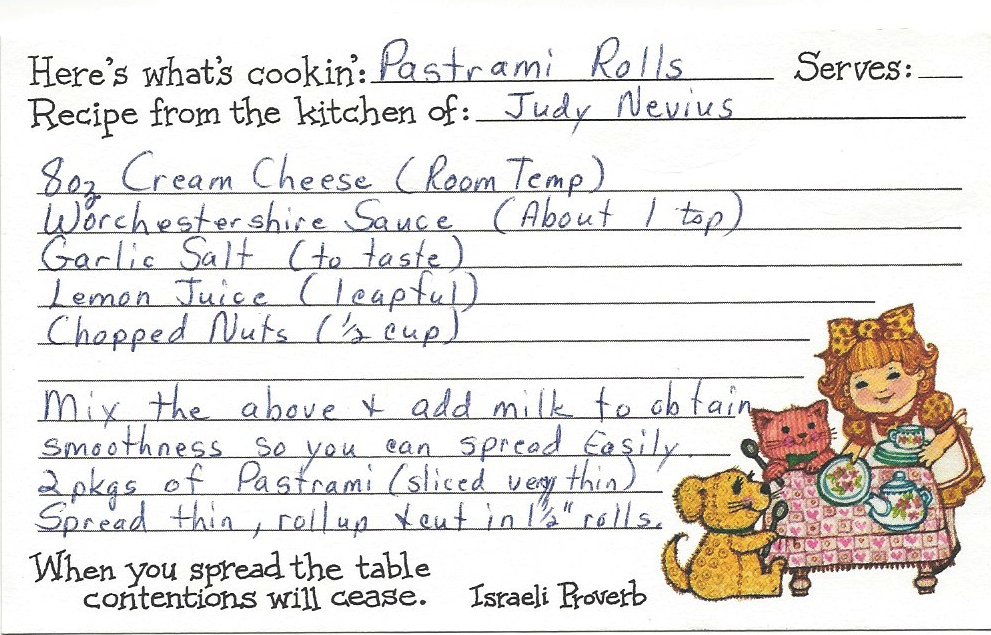 Here's what's cookin': Pastrami Rolls Serves:
Recipe from the kitchen of: Judy Nevius
8oz Cream Cheese (Room Temp)
Worchestershire Sauce (About 1 tsp)
Garlic Salt (to taste)
Lemon Juice (1 capful)
Chopped Nuts (1/2 cup)
Mix the above & add milk to obtain
smoothness so you can spread Easily.
2 pkgs of Pastrami (sliced very thin)
Spread thin, roll up & cut in 1 1/2" rolls.
When you spread the table
contentions will cease. Israeli Proverb